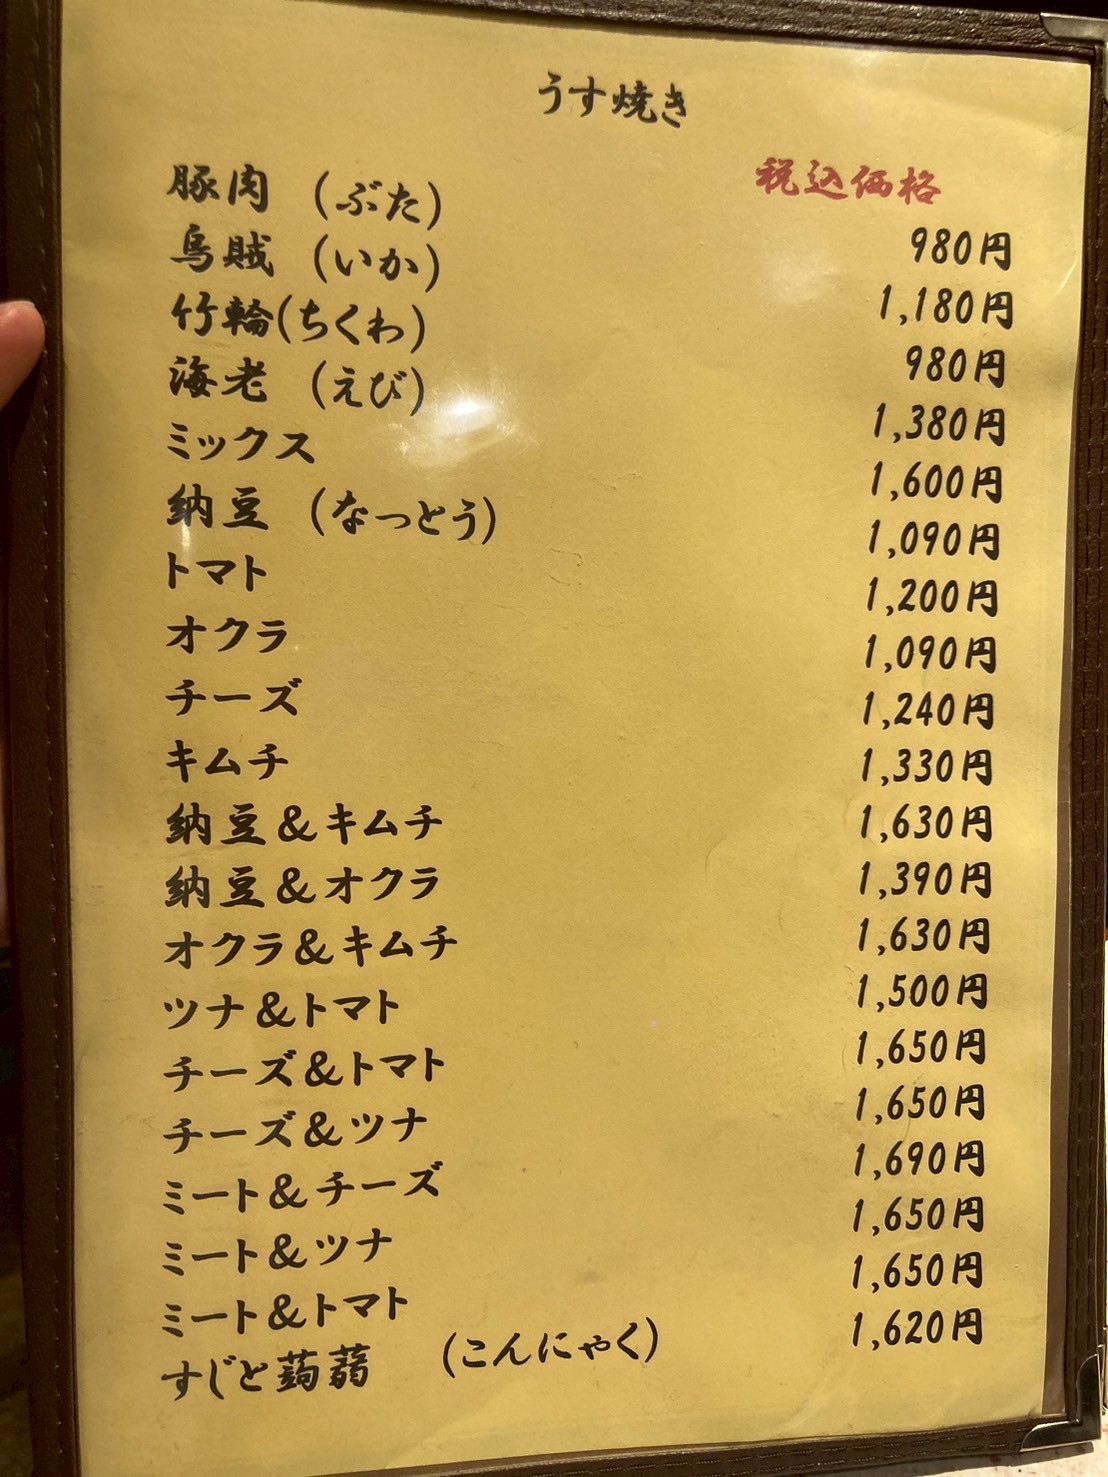 うす焼き
税込価格
豚肉 (ぶた) 980円
烏賊 (いか) 1,180円
竹輪(ちくわ) 980円
海老 (えび) 1,380円
ミックス 1,600円
納豆 (なっとう) 1,090円
トマト 1,200円
オクラ 1,090円
チーズ 1,240円
キムチ 1,330円
納豆&キムチ 1,630円
納豆&オクラ 1,390円
オクラ&キムチ 1,630円
ツナ&トマト 1,500円
チーズ&トマト 1,650円
チーズ&ツナ 1,650円
ミート&チーズ 1,690円
ミート&ツナ 1,650円
ミート&トマト 1,650円
すじと蒟蒻 (こんにゃく) 1,620円